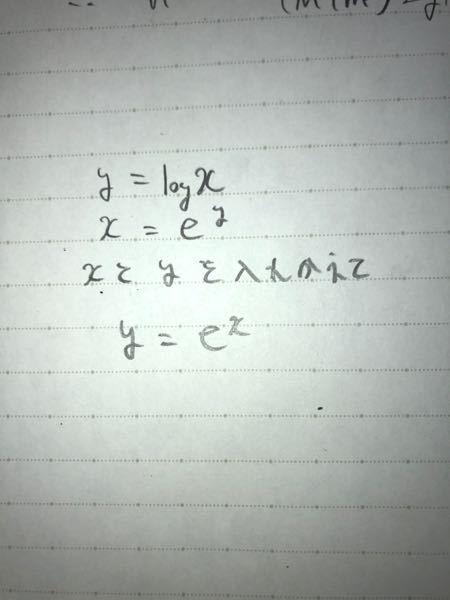 y = log x
x = e^y
xとyを入れかえて
y = e^x